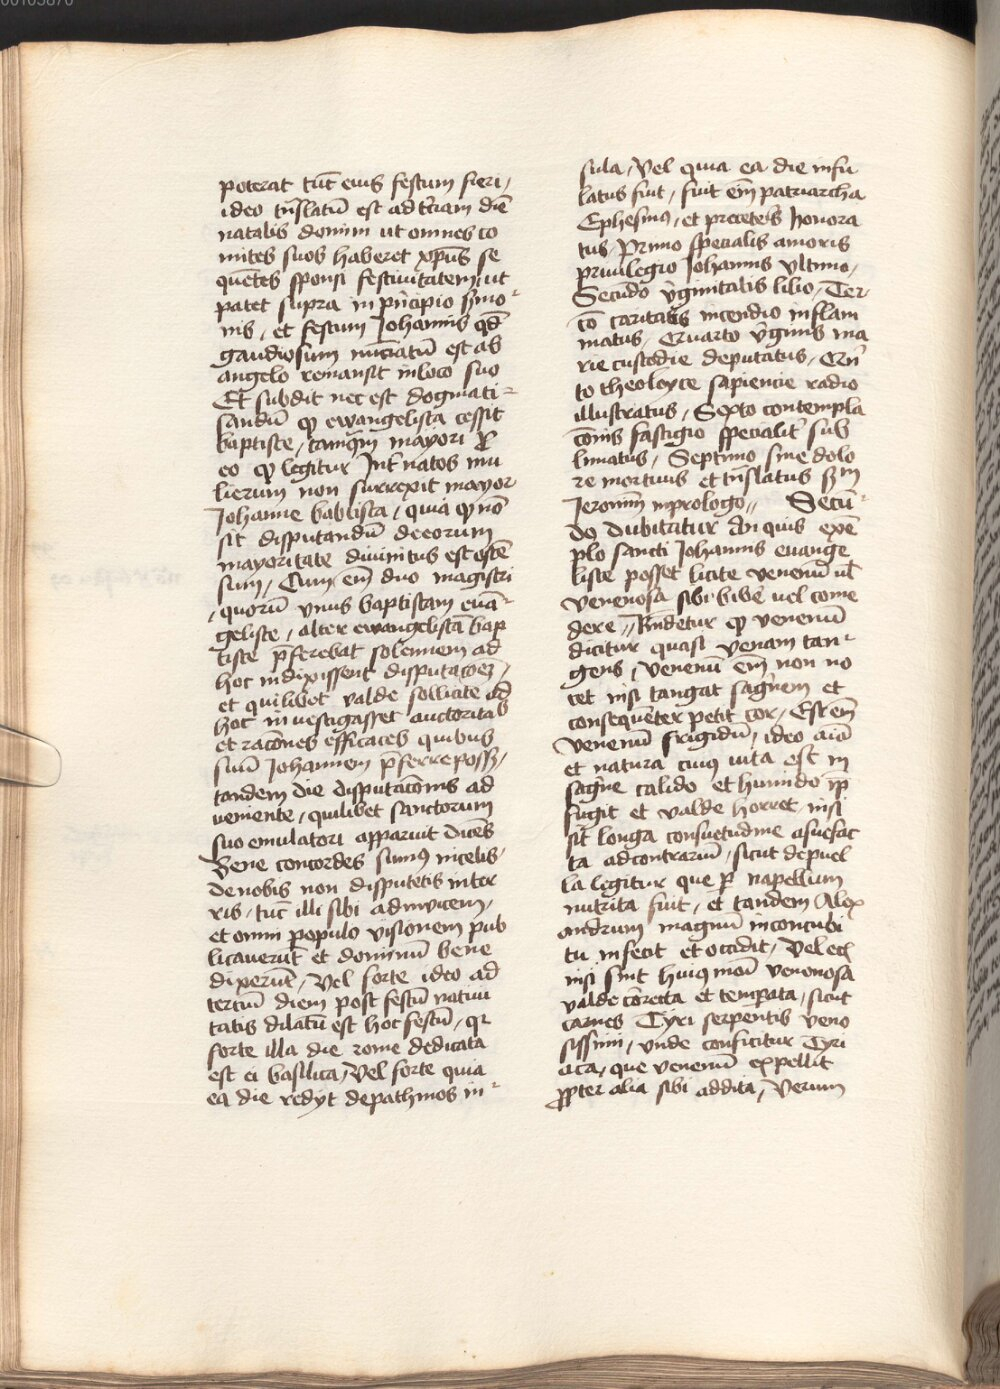 00105876
poterat tūc eius festum fieri,
ideo tn̄slatū est ad t̄ciam diē
natalis domini ut omnes co
mites suos haberet xp̄us se
quētes sponsi festiuitatem, ut
patet supra in pͥncipio s̄mo⸗
nis, et festum Johannis qd̄
gaudiosum nuc̄iatū est ab
angelo remansit in loco suo
Et subdit nec est dogmati⸗
sandū qͥ ewangelista cessit
baptiste, tamq̄m mayori Et
eo qͥ legitur Int̄ natos mu
lierum non surrexit mayor
Johanne baptista, quia qͥ nō
sit disputandū de eorum
mayoritate diuinitus est ostē
sum, Cum em̄ duo magistri
, quorū vnus baptistam euā⸗
geliste, alter ewangelistā bap
tiste p̄ferebat solennem ad
hoc indixissent disputac̄oēz,
et quilibet valde sollicite ad
hoc inuestigasset auctoritab
et rac̄ones efficaces quibus
suū Johannem p̄ferre possz,
tandem die disputac̄onis ad
ueniente, quilibet sanctorum
suo emulatori apparuit dicēs
Bene concordes sumꝰ in celis,
de nobis non disputetis in ter
ris, tūc illi sibi ad inuicem,
et omni populo visionem pub
licauerūt et dominū bene
dixerūt, Vel forte ideo ad
terciū diem post festū natiui
tatis dilatū est hoc festū, qꝛ
forte illa die rome dedicata
est ei basilica, Vel forte quia
ea die redyt de pathmos in⸗
sula, Vel quia ea die infu
latus fuit, fuit em̄ patriarcha
Ephesinꝰ, et pre ceteris honora
tus Primo specialis amoris
priuilegio Johannis vltimo,
Secūdo v̄ginitatis lilio, Ter⸗
cō caritatis incendio inflam
matus, Quarto v̄ginis ma
rie custodie deputatus, Qͥn
to theoloyce sapiencie radio
illustratus, Sexto contempla
c̄onis fastigio specialit̄ sub
limatus, Septimo sine dolo
re mortuus et tn̄slatus s̄m
Jeronim̄ in prologo,, Secū⸗
do dubitatur An quis exē
plo sancti Johannis euange
liste posset licite venenū ul̄
venenosa sibi bib̄e uel come
dere,, Rn̄detur qͥ venenū
dicitur quasi venam tan⸗
gens, venenū em̄ non no
cet nisi tangat saḡnem et
consequēter petit cor, Est em̄
venenū frigidū, ideo aīa
et natura cuiꝰ uita est in
saḡne calido et humido ip̄m
fugit et valde horret nisi
sit̄ longa consuetudine asuefac
ta ad contrariū, sicut de puel
la legitur que p̄ napellum
nutrita fuit, et tandem Alex
andrum magnū in concubi
tu infecit et occidit, Vel ecī
nisi sint huiꝰmōi venenosa
valde c̄orecta et temp̄ata, sicut
carnes Tyri serpentis veno
sissimi, vnde conficitur Tyri
aca, que venenū expellit
ꝓpter alia sibi addita, Verum